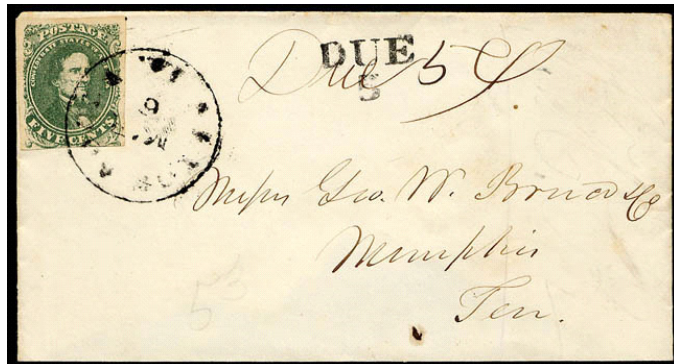 POSTAGE
CONFEDERATE STATES OF AMERICA
FIVE CENTS
DUE
5
Due 5
Geo. W.
Memphis
Ten.
53